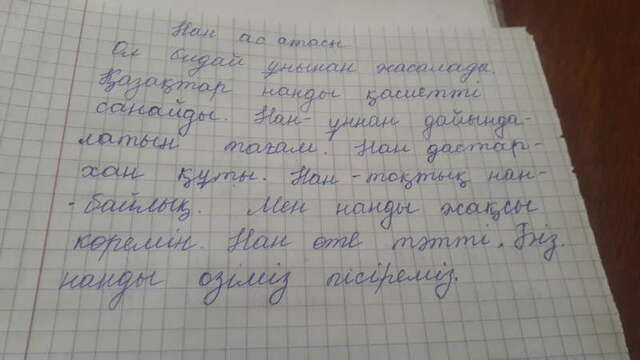 Нан ас атасы
Ол бидай ұнынан жасалады.
Қазақтар нанды қасиетті
санайды. Нан- ұннан дайында-
латын тағам. Нан дастар-
хан құты. Нан - тоқтық нан-
- байлық. Мен нанды жақсы
көремін. Нан өте тәтті. Біз
нанды өзіміз пісіреміз.